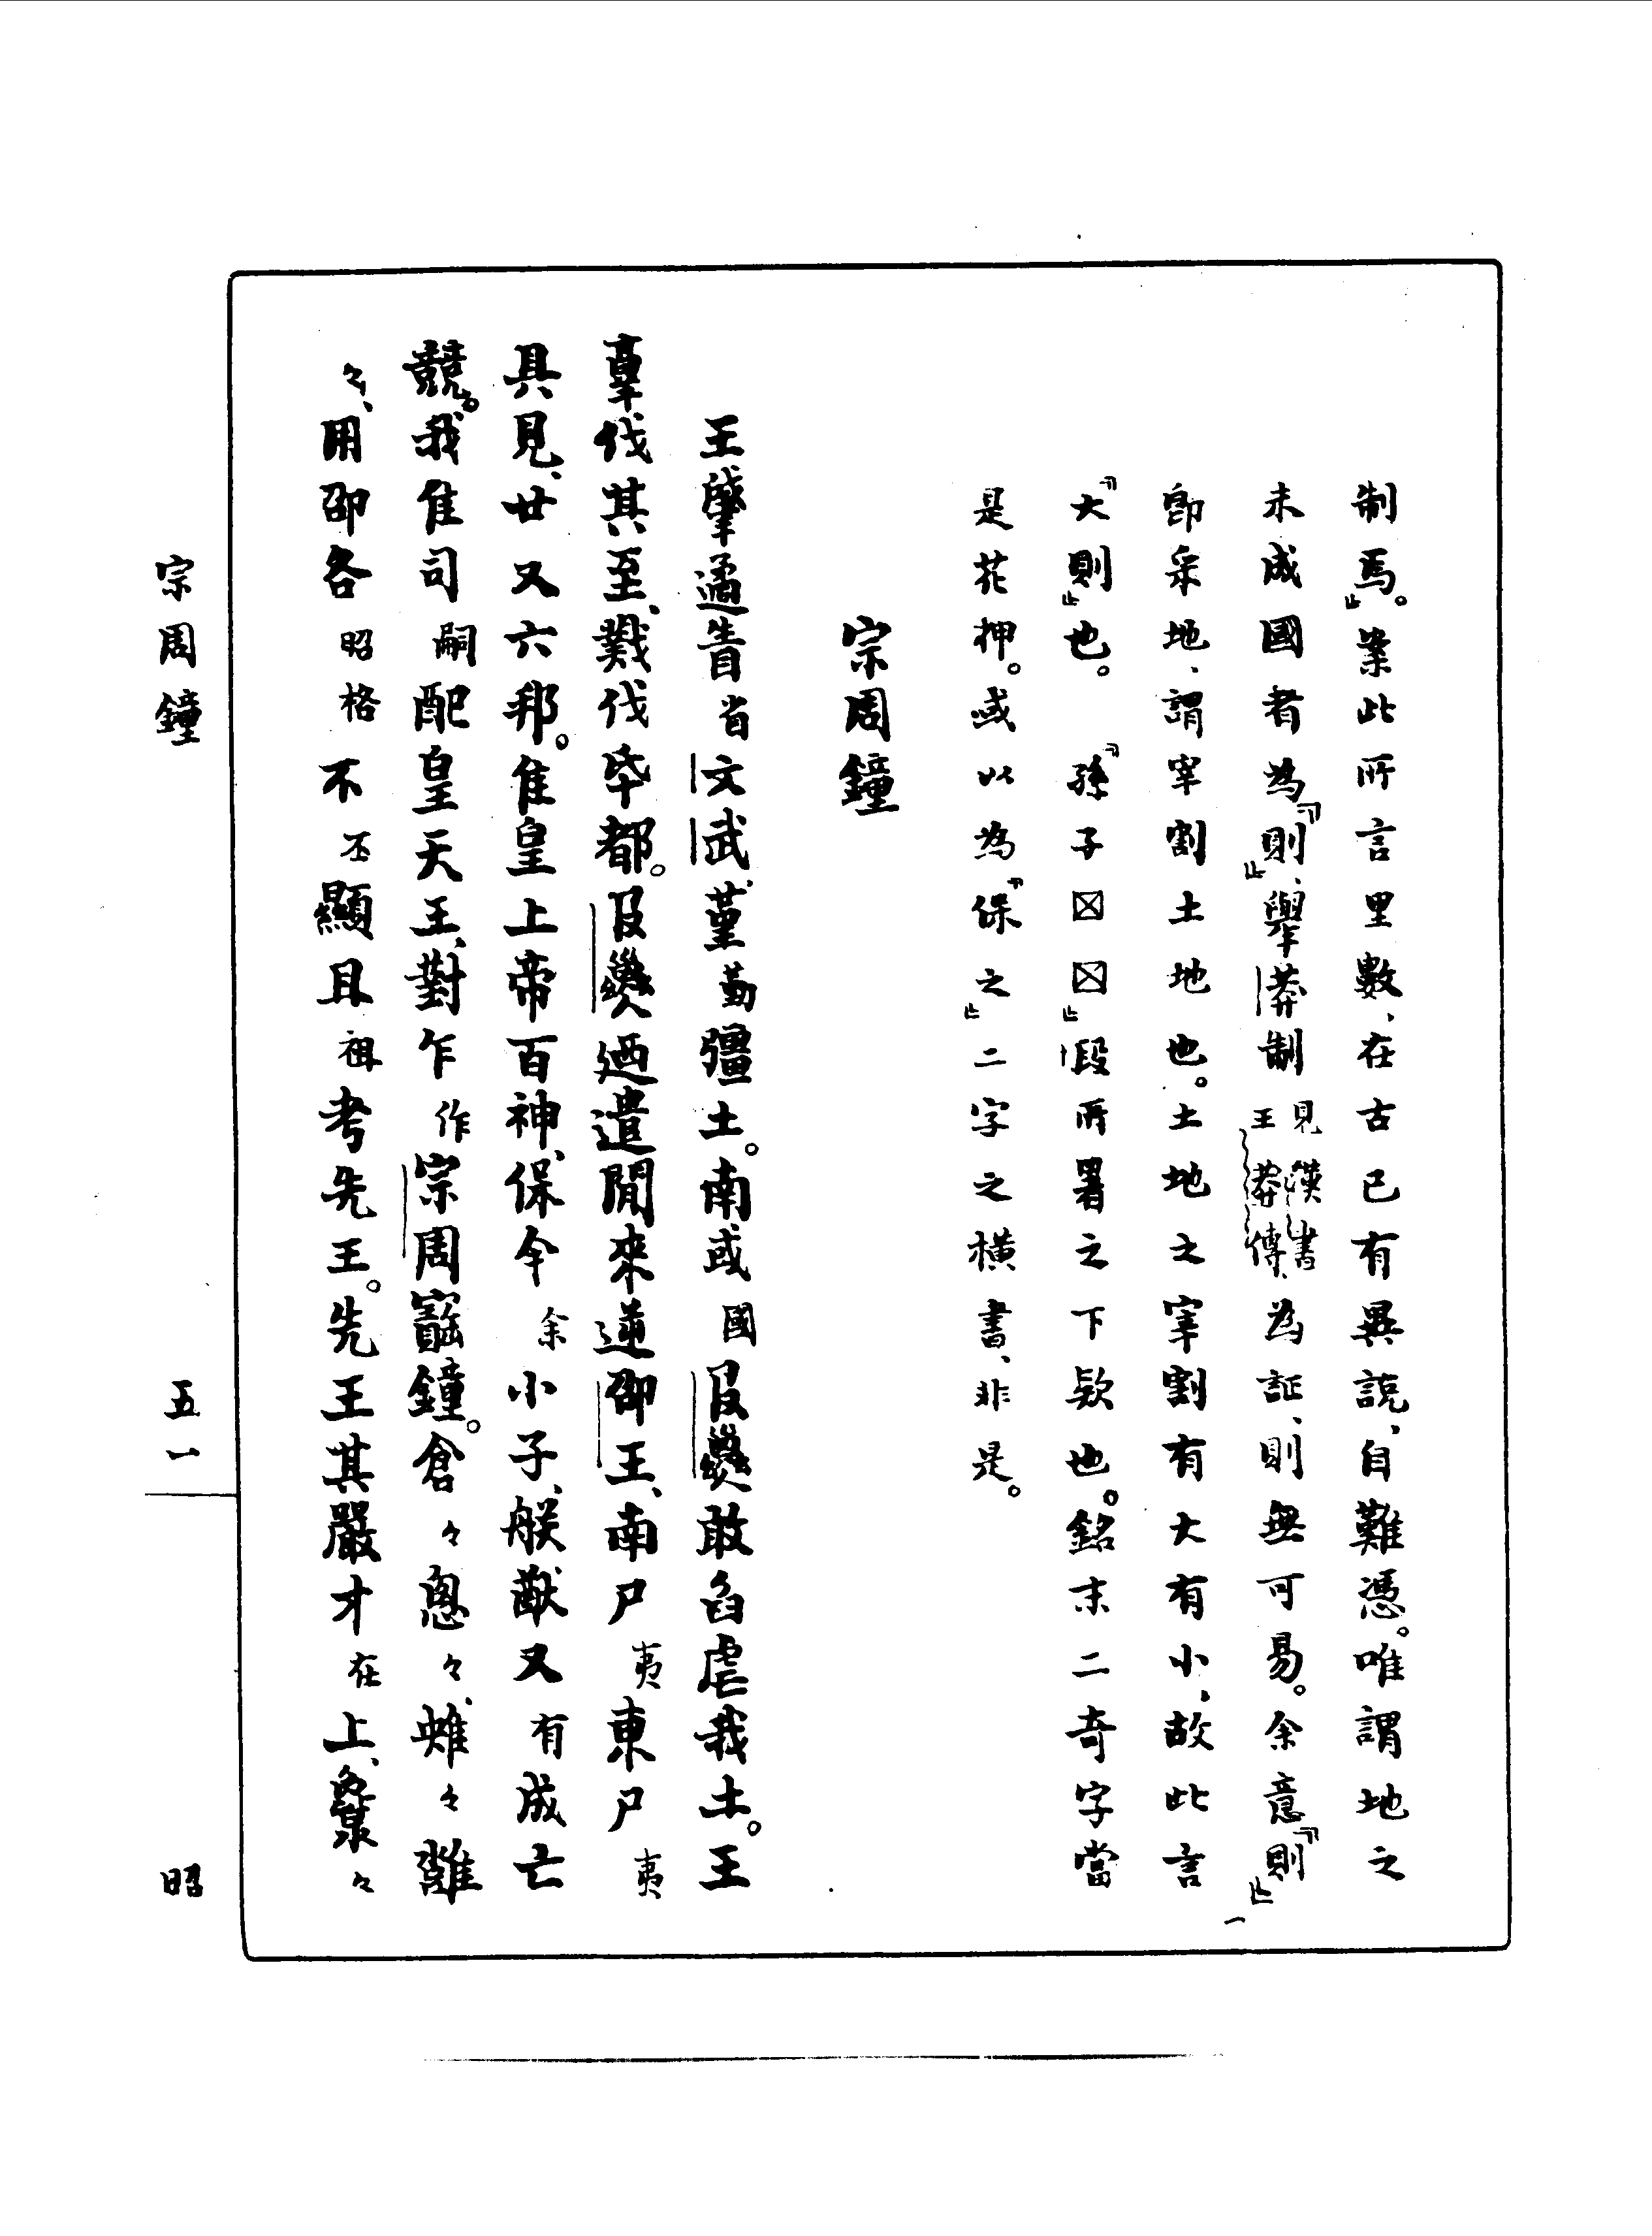 制焉。』案此所言里數、在古已有異說、自難憑。唯謂地之
未成國者為『則』、舉莽制見漢書王莽傳、為証、則無可易。余意『則』
即采地、謂宰割土地也。土地之宰割有大有小、故此言
『大則』也。『孫子☒☒』段所署之下款也。銘末二奇字當
是花押。或以為『保之』二字之橫書、非是。
宗周鐘
王肇遹眚省文武、堇勤彊土。南或國𠬝孳敢臽虐我土。王
𦎫伐其至、戮伐氒都。𠬝孳廼遣閒來逆卲王、南尸夷東尸夷
具見、廿又六邦。隹皇上帝百神、保余小子、朕猷又有成亡
競。我隹司嗣配皇天王、對乍作宗周寶鐘。倉々悤々、雉々雝
々、用卲各昭格不丕顯且祖考先王。先王其嚴才在上、𤾊々
宗周鐘
五一
昭